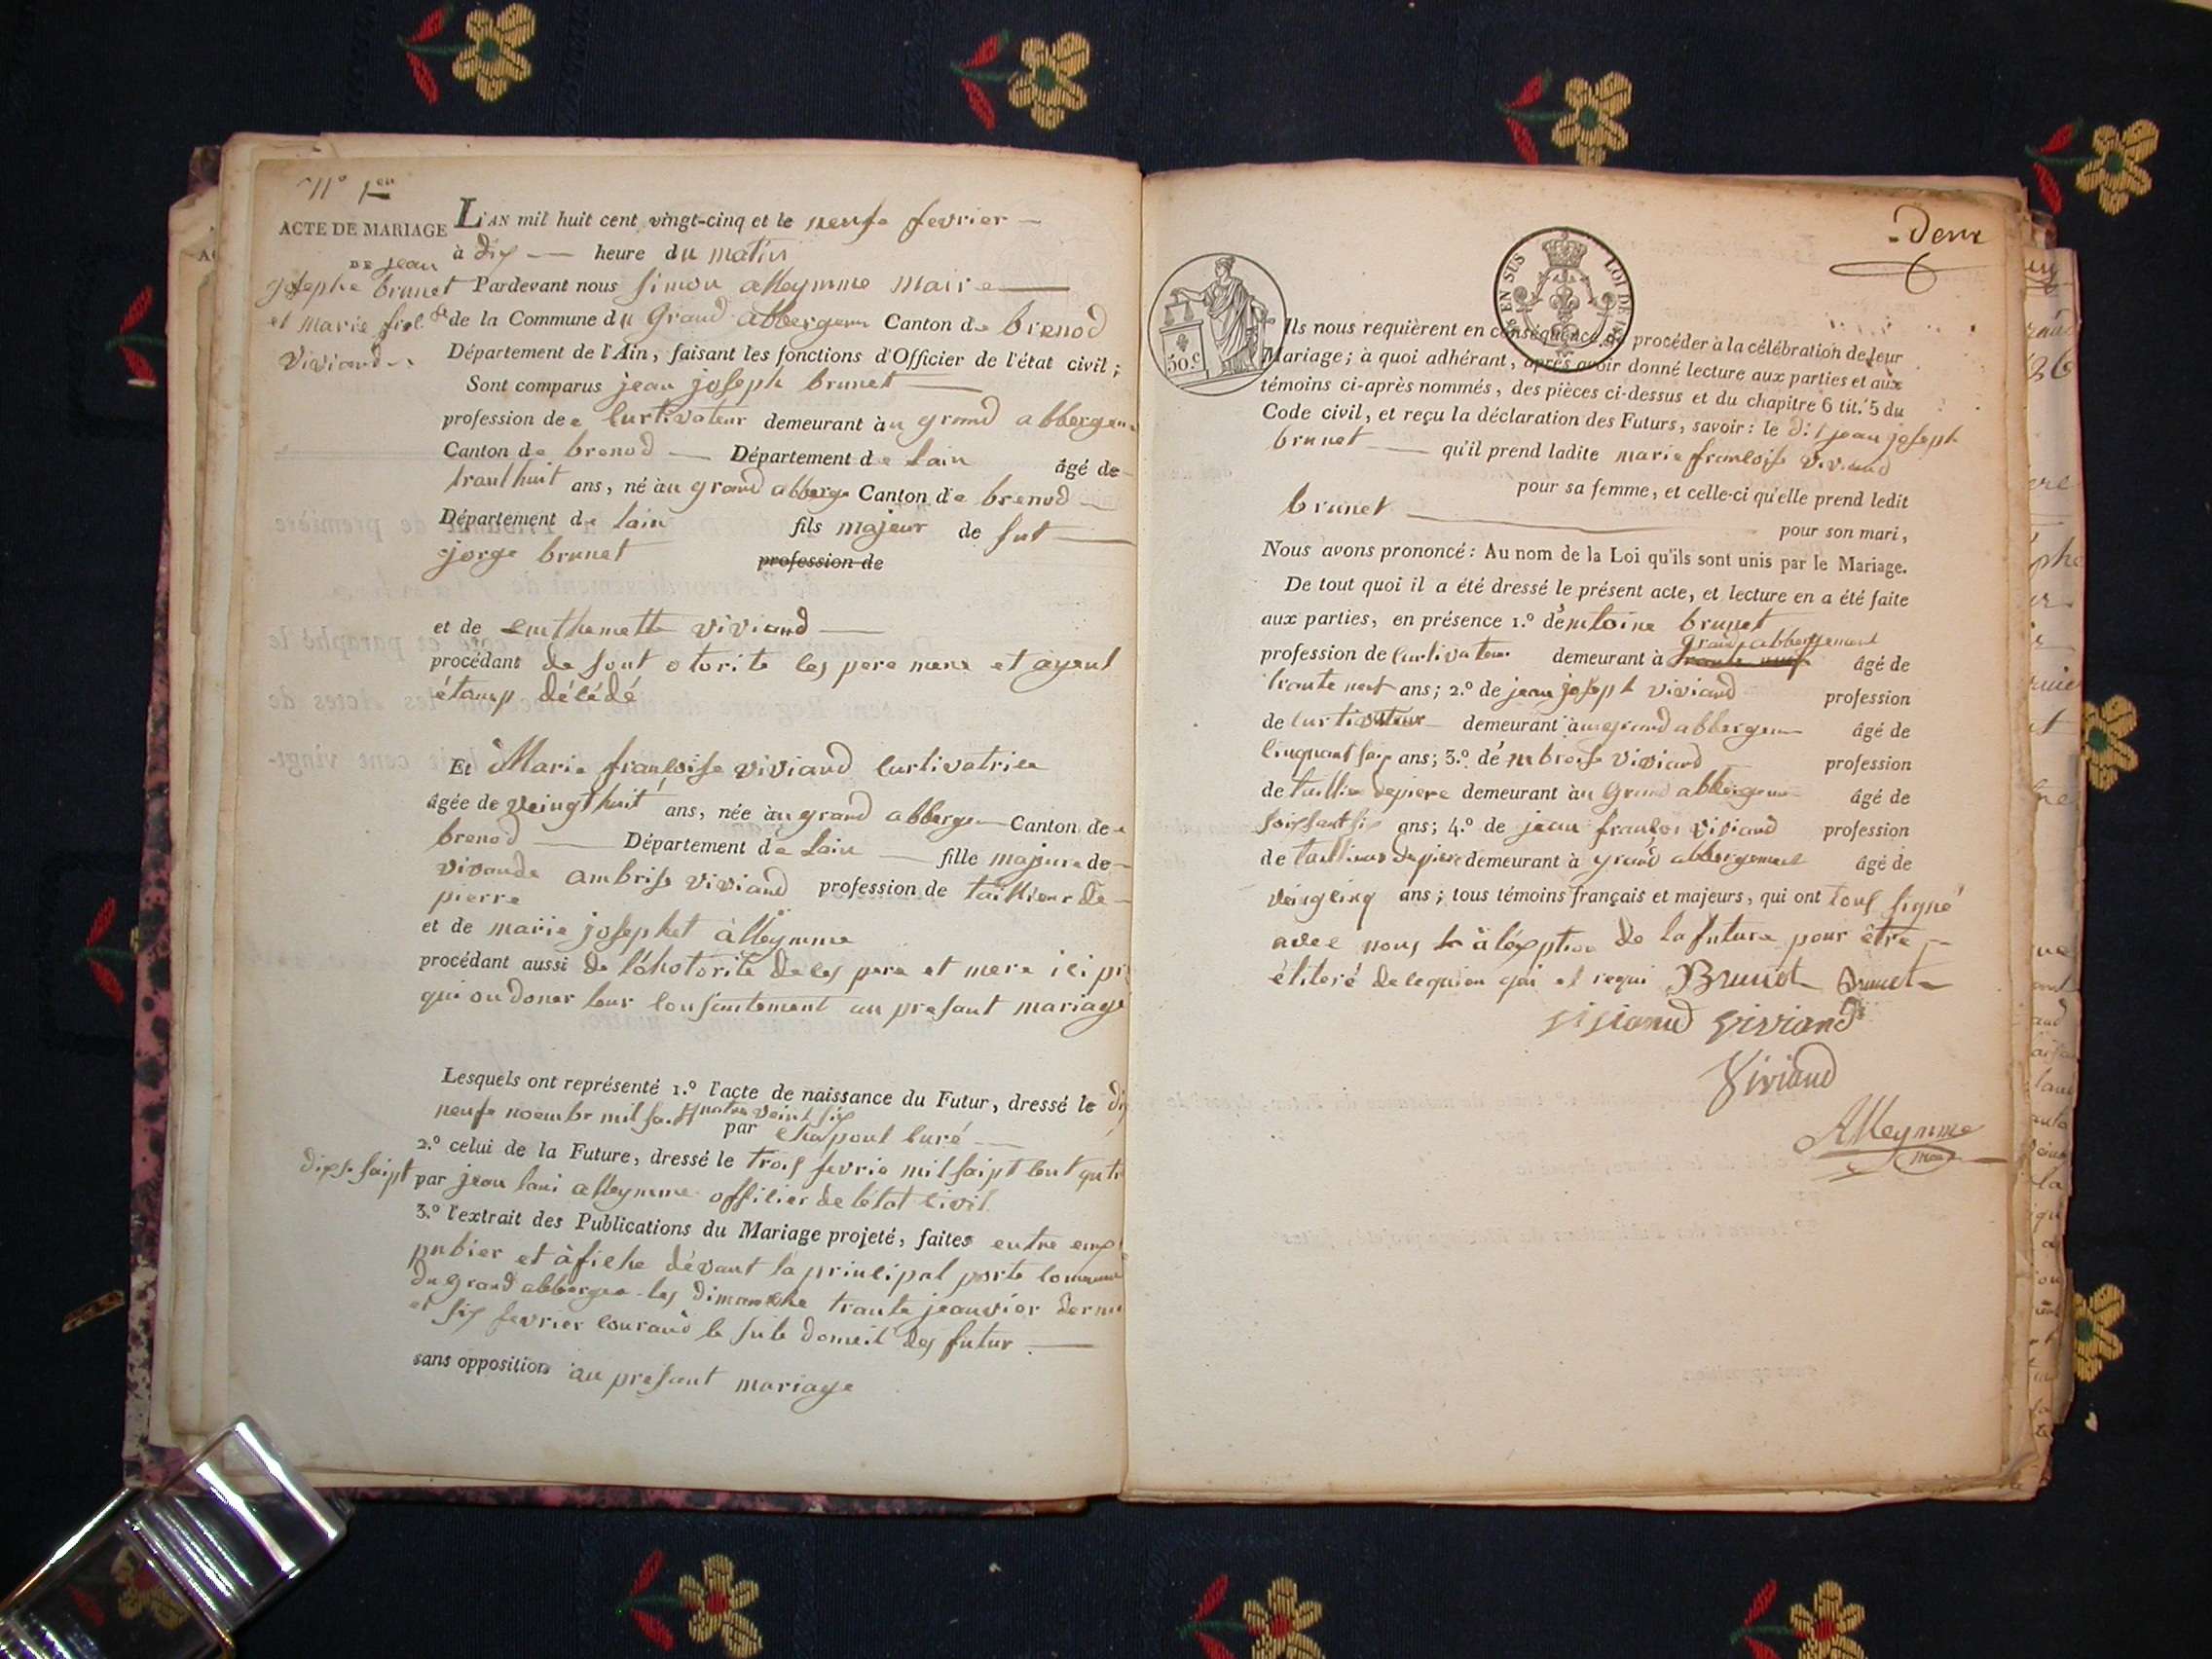 N° 1er
ACTE DE MARIAGE
DE jean
josephe brunet
et marie
viviand
L'AN mil huit cent vingt-cinq et le neufe fevrier
à dix heure du matin
Pardevant nous simon alleymme maire
de la Commune du grand abbergem Canton de brenod
Département de l'Ain, faisant les fonctions d'Officier de l'état civil;
Sont comparus jean joseph brunet
profession de curtivateur demeurant au grand abbergem
Canton de brenod Département de lain âgé de
trant huit ans, né au grand abberge Canton de brenod
Département de lain fils majeur de fut
jorge brunet profession de
et de viviand
procédant de sont otorite les pere mere et ayant
étamp désédé
Et Marie françoise viviand curtivatrice
âgée de veingt huit ans, née au grand abbergem Canton de
brenod Département de lain fille majure de
vivande ambrise viviand profession de taillieur de
pierre
et de marie josephet alleymme
procédant aussi de l'óhotorite de ses pere et mere ici
qui on doner leur consantement au presant mariage
Lesquels ont représenté 1.° l'acte de naissance du Futur, dressé le
neufe noembr mil veint six
par curé
2.° celui de la Future, dressé le trois fevrie mil saipt cent
dixse saipt par jean alleymme offisier de l'étot sivil
3.° l'extrait des Publications du Mariage projeté, faites entre
pubier et afiche dévant la principal porte
du grand abberge les dimanche trante jeanvier
et six fevrier courand le domicil des futur
sans opposition au presant mariage
deux
EN SUS LOI DE
50.c
Ils nous requièrent en conséquence de procéder à la célébration de leur
Mariage; à quoi adhérant, après avoir donné lecture aux parties et aux
témoins ci-après nommés, des pièces ci-dessus et du chapitre 6 tit. 5 du
Code civil, et reçu la déclaration des Futurs, savoir: le dit jean joseph
brunet qu'il prend ladite marie françoise viviand
pour sa femme, et celle-ci qu'elle prend ledit
brunet
pour son mari,
Nous avons prononcé: Au nom de la Loi qu'ils sont unis par le Mariage.
De tout quoi il a été dressé le présent acte, et lecture en a été faite
aux parties, en présence 1.° d'entoine brunet
grand abbergement
profession de curtivateur demeurant à âgé de
trante neuf ans; 2.° de jean joseph viviand profession
de curtivateur demeurant au grand abbergem âgé de
cinquant saip ans; 3.° d'embroise viviand profession
de taillieu depiere demeurant au grand abbergem âgé de
soissant six ans; 4.° de jean françois viviand profession
de taillieur depiere demeurant à grand abbergement âgé de
veingcinq ans; tous témoins français et majeurs, qui ont tous signé
avec nous à léxption de la future pour être
éliteré de ce quien qui et requi Brunet Brunet
viviand viviand
Viviand
Alleymme
maire